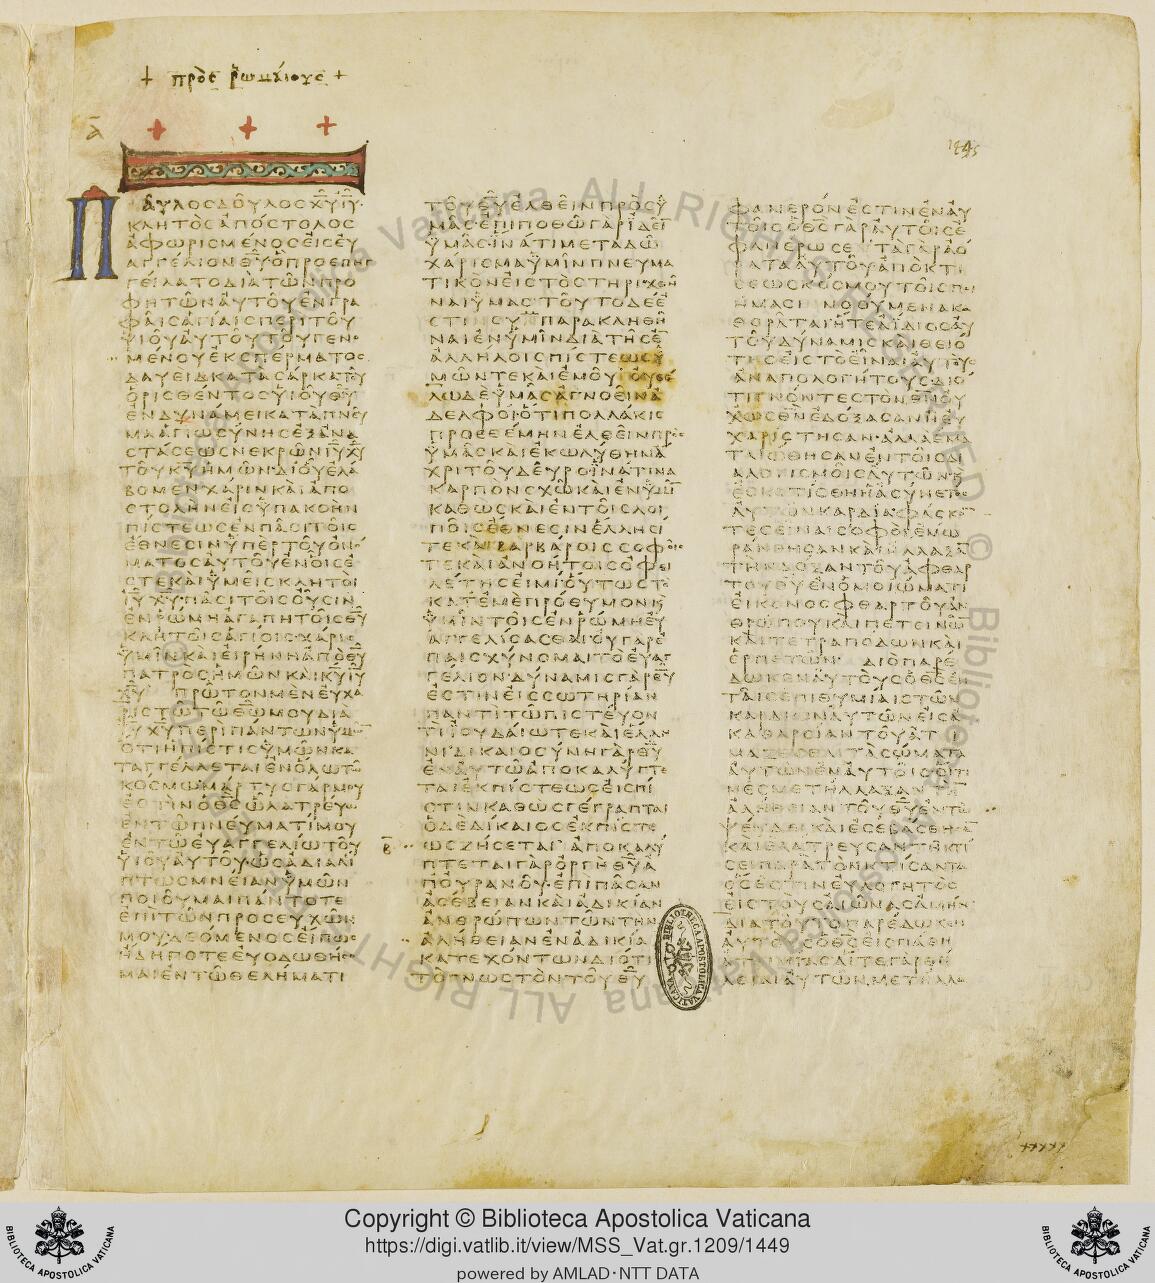 + πρὸς ῥωμαίους +
Α
1445
ΠΑΥΛΟΣ ΔΟΥΛΟΣ ΧΥ ΙΥ
ΚΛΗΤΟΣ ΑΠΟΣΤΟΛΟΣ
ΑΦΩΡΙΣΜΕΝΟΣ ΕΙΣ ΕΥ
ΑΓΓΕΛΙΟΝ ΘΥ Ο ΠΡΟΕΠΗΓ
ΓΕΙΛΑΤΟ ΔΙΑ ΤΩΝ ΠΡΟ
ΦΗΤΩΝ ΑΥΤΟΥ ΕΝ ΓΡΑ
ΦΑΙΣ ΑΓΙΑΙΣ ΠΕΡΙ ΤΟΥ
ΥΙΟΥ ΑΥΤΟΥ ΤΟΥ ΓΕΝΟ
ΜΕΝΟΥ ΕΚ ΣΠΕΡΜΑΤΟΣ
ΔΑΥΕΙΔ ΚΑΤΑ ΣΑΡΚΑ ΤΟΥ
ΟΡΙΣΘΕΝΤΟΣ ΥΙΟΥ ΘΥ
ΕΝ ΔΥΝΑΜΕΙ ΚΑΤΑ ΠΝΕΥ
ΜΑ ΑΓΙΩΣΥΝΗΣ ΕΞ ΑΝΑ
ΣΤΑΣΕΩΣ ΝΕΚΡΩΝ ΙΥ ΧΥ
ΤΟΥ ΚΥ ΗΜΩΝ ΔΙ ΟΥ ΕΛΑ
ΒΟΜΕΝ ΧΑΡΙΝ ΚΑΙ ΑΠΟ
ΣΤΟΛΗΝ ΕΙΣ ΥΠΑΚΟΗΝ
ΠΙΣΤΕΩΣ ΕΝ ΠΑΣΙ ΤΟΙΣ
ΕΘΝΕΣΙΝ ΥΠΕΡ ΤΟΥ ΟΝΟ
ΜΑΤΟΣ ΑΥΤΟΥ ΕΝ ΟΙΣ Ε
ΣΤΕ ΚΑΙ ΥΜΕΙΣ ΚΛΗΤΟΙ
ΙΥ ΧΥ ΠΑΣΙ ΤΟΙΣ ΟΥΣΙΝ
ΕΝ ΡΩΜΗ ΑΓΑΠΗΤΟΙΣ ΘΥ
ΚΛΗΤΟΙΣ ΑΓΙΟΙΣ ΧΑΡΙΣ
ΥΜΙΝ ΚΑΙ ΕΙΡΗΝΗ ΑΠΟ ΘΥ
ΠΑΤΡΟΣ ΗΜΩΝ ΚΑΙ ΚΥ ΙΥ
ΧΥ ΠΡΩΤΟΝ ΜΕΝ ΕΥΧΑ
ΡΙΣΤΩ ΤΩ ΘΩ ΜΟΥ ΔΙΑ
ΙΥ ΧΥ ΠΕΡΙ ΠΑΝΤΩΝ ΥΜΩΝ
ΟΤΙ Η ΠΙΣΤΙΣ ΥΜΩΝ ΚΑ
ΤΑΓΓΕΛΛΕΤΑΙ ΕΝ ΟΛΩ ΤΩ
ΚΟΣΜΩ ΜΑΡΤΥΣ ΓΑΡ ΜΟΥ
ΕΣΤΙΝ Ο ΘΣ Ω ΛΑΤΡΕΥΩ
ΕΝ ΤΩ ΠΝΕΥΜΑΤΙ ΜΟΥ
ΕΝ ΤΩ ΕΥΑΓΓΕΛΙΩ ΤΟΥ
ΥΙΟΥ ΑΥΤΟΥ ΩΣ ΑΔΙΑΛΙ
ΠΤΩΣ ΜΝΕΙΑΝ ΥΜΩΝ
ΠΟΙΟΥΜΑΙ ΠΑΝΤΟΤΕ
ΕΠΙ ΤΩΝ ΠΡΟΣΕΥΧΩΝ
ΜΟΥ ΔΕΟΜΕΝΟΣ ΕΙ ΠΩΣ
ΗΔΗ ΠΟΤΕ ΕΥΟΔΩΘΗΣΟ
ΜΑΙ ΕΝ ΤΩ ΘΕΛΗΜΑΤΙ
ΤΟΥ ΘΥ ΕΛΘΕΙΝ ΠΡΟΣ Υ
ΜΑΣ ΕΠΙΠΟΘΩ ΓΑΡ ΙΔΕΙ
ΥΜΑΣ ΙΝΑ ΤΙ ΜΕΤΑΔΩ
ΧΑΡΙΣΜΑ ΥΜΙΝ ΠΝΕΥΜΑ
ΤΙΚΟΝ ΕΙΣ ΤΟ ΣΤΗΡΙΧΘΗ
ΝΑΙ ΥΜΑΣ ΤΟΥΤΟ ΔΕ Ε
ΣΤΙΝ ΣΥΜΠΑΡΑΚΛΗΘΗ
ΝΑΙ ΕΝ ΥΜΙΝ ΔΙΑ ΤΗΣ Ε
ΑΛΛΗΛΟΙΣ ΠΙΣΤΕΩΣ Υ
ΜΩΝ ΤΕ ΚΑΙ ΕΜΟΥ ΟΥ ΘΕ
ΛΩ ΔΕ ΥΜΑΣ ΑΓΝΟΕΙΝ Α
ΔΕΛΦΟΙ ΟΤΙ ΠΟΛΛΑΚΙΣ
ΠΡΟΕΘΕΜΗΝ ΕΛΘΕΙΝ ΠΡΟΣ
ΥΜΑΣ ΚΑΙ ΕΚΩΛΥΘΗΝ Α
ΧΡΙ ΤΟΥ ΔΕΥΡΟ ΙΝΑ ΤΙΝΑ
ΚΑΡΠΟΝ ΣΧΩ ΚΑΙ ΕΝ ΥΜΙΝ
ΚΑΘΩΣ ΚΑΙ ΕΝ ΤΟΙΣ ΛΟΙ
ΠΟΙΣ ΕΘΝΕΣΙΝ ΕΛΛΗΣΙ
ΤΕ ΚΑΙ ΒΑΡΒΑΡΟΙΣ ΣΟΦΟΙΣ
ΤΕ ΚΑΙ ΑΝΟΗΤΟΙΣ ΟΦΕΙ
ΛΕΤΗΣ ΕΙΜΙ ΟΥΤΩΣ ΤΟ
ΚΑΤ ΕΜΕ ΠΡΟΘΥΜΟΝ Κ
ΥΜΙΝ ΤΟΙΣ ΕΝ ΡΩΜΗ ΕΥ
ΑΓΓΕΛΙΣΑΣΘΑΙ ΟΥ ΓΑΡ Ε
ΠΑΙΣΧΥΝΟΜΑΙ ΤΟ ΕΥΑΓ
ΓΕΛΙΟΝ ΔΥΝΑΜΙΣ ΓΑΡ ΘΥ
ΕΣΤΙΝ ΕΙΣ ΣΩΤΗΡΙΑΝ
ΠΑΝΤΙ ΤΩ ΠΙΣΤΕΥΟΝ
ΤΙ ΙΟΥΔΑΙΩ ΤΕ ΚΑΙ ΕΛΛΗ
ΝΙ ΔΙΚΑΙΟΣΥΝΗ ΓΑΡ ΘΥ
ΕΝ ΑΥΤΩ ΑΠΟΚΑΛΥΠΤΕ
ΤΑΙ ΕΚ ΠΙΣΤΕΩΣ ΕΙΣ ΠΙ
ΣΤΙΝ ΚΑΘΩΣ ΓΕΓΡΑΠΤΑΙ
Ο ΔΕ ΔΙΚΑΙΟΣ ΕΚ ΠΙΣΤΕ
Β
ΩΣ ΖΗΣΕΤΑΙ ΑΠΟΚΑΛΥ
ΠΤΕΤΑΙ ΓΑΡ ΟΡΓΗ ΘΥ Α
Π ΟΥΡΑΝΟΥ ΕΠΙ ΠΑΣΑΝ
ΑΣΕΒΕΙΑΝ ΚΑΙ ΑΔΙΚΙΑΝ
ΑΝΘΡΩΠΩΝ ΤΩΝ ΤΗΝ
ΑΛΗΘΕΙΑΝ ΕΝ ΑΔΙΚΙΑ
ΚΑΤΕΧΟΝΤΩΝ ΔΙΟΤΙ
ΤΟ ΓΝΩΣΤΟΝ ΤΟΥ ΘΥ
ΦΑΝΕΡΟΝ ΕΣΤΙΝ ΕΝ ΑΥ
ΤΟΙΣ Ο ΘΣ ΓΑΡ ΑΥΤΟΙΣ Ε
ΦΑΝΕΡΩΣΕ ΤΑ ΓΑΡ ΑΟ
ΡΑΤΑ ΑΥΤΟΥ ΑΠΟ ΚΤΙ
ΣΕΩΣ ΚΟΣΜΟΥ ΤΟΙΣ ΠΟΙ
ΗΜΑΣΙ ΝΟΟΥΜΕΝΑ ΚΑ
ΘΟΡΑΤΑΙ Η ΤΕ ΑΙΔΙΟΣ ΑΥ
ΤΟΥ ΔΥΝΑΜΙΣ ΚΑΙ ΘΕΙΟ
ΤΗΣ ΕΙΣ ΤΟ ΕΙΝΑΙ ΑΥΤΟΥΣ
ΑΝΑΠΟΛΟΓΗΤΟΥΣ ΔΙΟ
ΤΙ ΓΝΟΝΤΕΣ ΤΟΝ ΘΝ ΟΥ
ΧΩΣ ΘΝ ΕΔΟΞΑΣΑΝ Η ΕΥ
ΧΑΡΙΣΤΗΣΑΝ ΑΛΛΑ ΕΜΑ
ΤΑΙΩΘΗΣΑΝ ΕΝ ΤΟΙΣ ΔΙ
ΑΛΟΓΙΣΜΟΙΣ ΑΥΤΩΝ Κ
ΕΣΚΟΤΙΣΘΗ Η ΑΣΥΝΕΤΟΣ
ΑΥΤΩΝ ΚΑΡΔΙΑ ΦΑΣΚΟ
ΤΕΣ ΕΙΝΑΙ ΣΟΦΟΙ ΕΜΩ
ΡΑΝΘΗΣΑΝ ΚΑΙ ΗΛΛΑΞΑ
ΤΗΝ ΔΟΞΑΝ ΤΟΥ ΑΦΘΑΡ
ΤΟΥ ΘΥ ΕΝ ΟΜΟΙΩΜΑΤΙ
ΕΙΚΟΝΟΣ ΦΘΑΡΤΟΥ ΑΝ
ΘΡΩΠΟΥ ΚΑΙ ΠΕΤΕΙΝΩ
ΚΑΙ ΤΕΤΡΑΠΟΔΩΝ ΚΑΙ
ΕΡΠΕΤΩΝ ΔΙΟ ΠΑΡΕ
ΔΩΚΕΝ ΑΥΤΟΥΣ Ο ΘΣ ΕΝ
ΤΑΙΣ ΕΠΙΘΥΜΙΑΙΣ ΤΩΝ
ΚΑΡΔΙΩΝ ΑΥΤΩΝ ΕΙΣ Α
ΚΑΘΑΡΣΙΑΝ ΤΟΥ ΑΤΙ
ΜΑΖΕΣΘΑΙ ΤΑ ΣΩΜΑΤΑ
ΑΥΤΩΝ ΕΝ ΑΥΤΟΙΣ ΟΙΤΙ
ΝΕΣ ΜΕΤΗΛΛΑΞΑΝ ΤΗ
ΑΛΗΘΕΙΑΝ ΤΟΥ ΘΥ ΕΝ ΤΩ
ΨΕΥΔΕΙ ΚΑΙ ΕΣΕΒΑΣΘΗΣΑ
ΚΑΙ ΕΛΑΤΡΕΥΣΑΝ ΤΗ ΚΤΙ
ΣΕΙ ΠΑΡΑ ΤΟΝ ΚΤΙΣΑΝΤΑ
ΟΣ ΕΣΤΙΝ ΕΥΛΟΓΗΤΟΣ
ΕΙΣ ΤΟΥΣ ΑΙΩΝΑΣ ΑΜΗΝ
ΔΙΑ ΤΟΥΤΟ ΠΑΡΕΔΩΚΕΝ
ΑΥΤΟΥΣ Ο ΘΣ ΕΙΣ ΠΑΘΗ
ΑΤΙΜΙΑΣ ΑΙ ΤΕ ΓΑΡ ΘΗ
ΛΕΙΑΙ ΑΥΤΩΝ ΜΕΤΗΛΛΑ
BIBLIOTHECA APOSTOLICA VATICANA
Biblioteca Apostolica Vaticana ALL RIGHTS RESERVED ©
Copyright © Biblioteca Apostolica Vaticana
https://digi.vatlib.it/view/MSS_Vat.gr.1209/1449
powered by AMLAD·NTT DATA
BIBLIOTECA APOSTOLICA VATICANA
BIBLIOTECA APOSTOLICA VATICANA